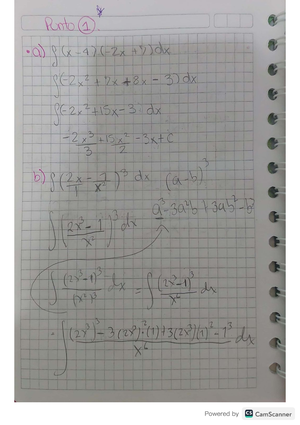 Punto 1
a) ∫(x-4)(-2x+7)dx
∫(-2x²+7x+8x-3)dx
∫(-2x²+15x-3)dx
-2x³/3+15x²/2-3x+C
b) ∫(2x/1-1/x²)³dx (a-b)³
∫((2x³-1)/x²)³dx a³-3a²b+3ab²-b³
∫(2x³-1)³/(x²)³dx=∫(2x³-1)³/x⁶dx
∫((2x³)³-3(2x³)²(1)+3(2x³)(1)²-1³)/x⁶dx
Powered by CS CamScanner